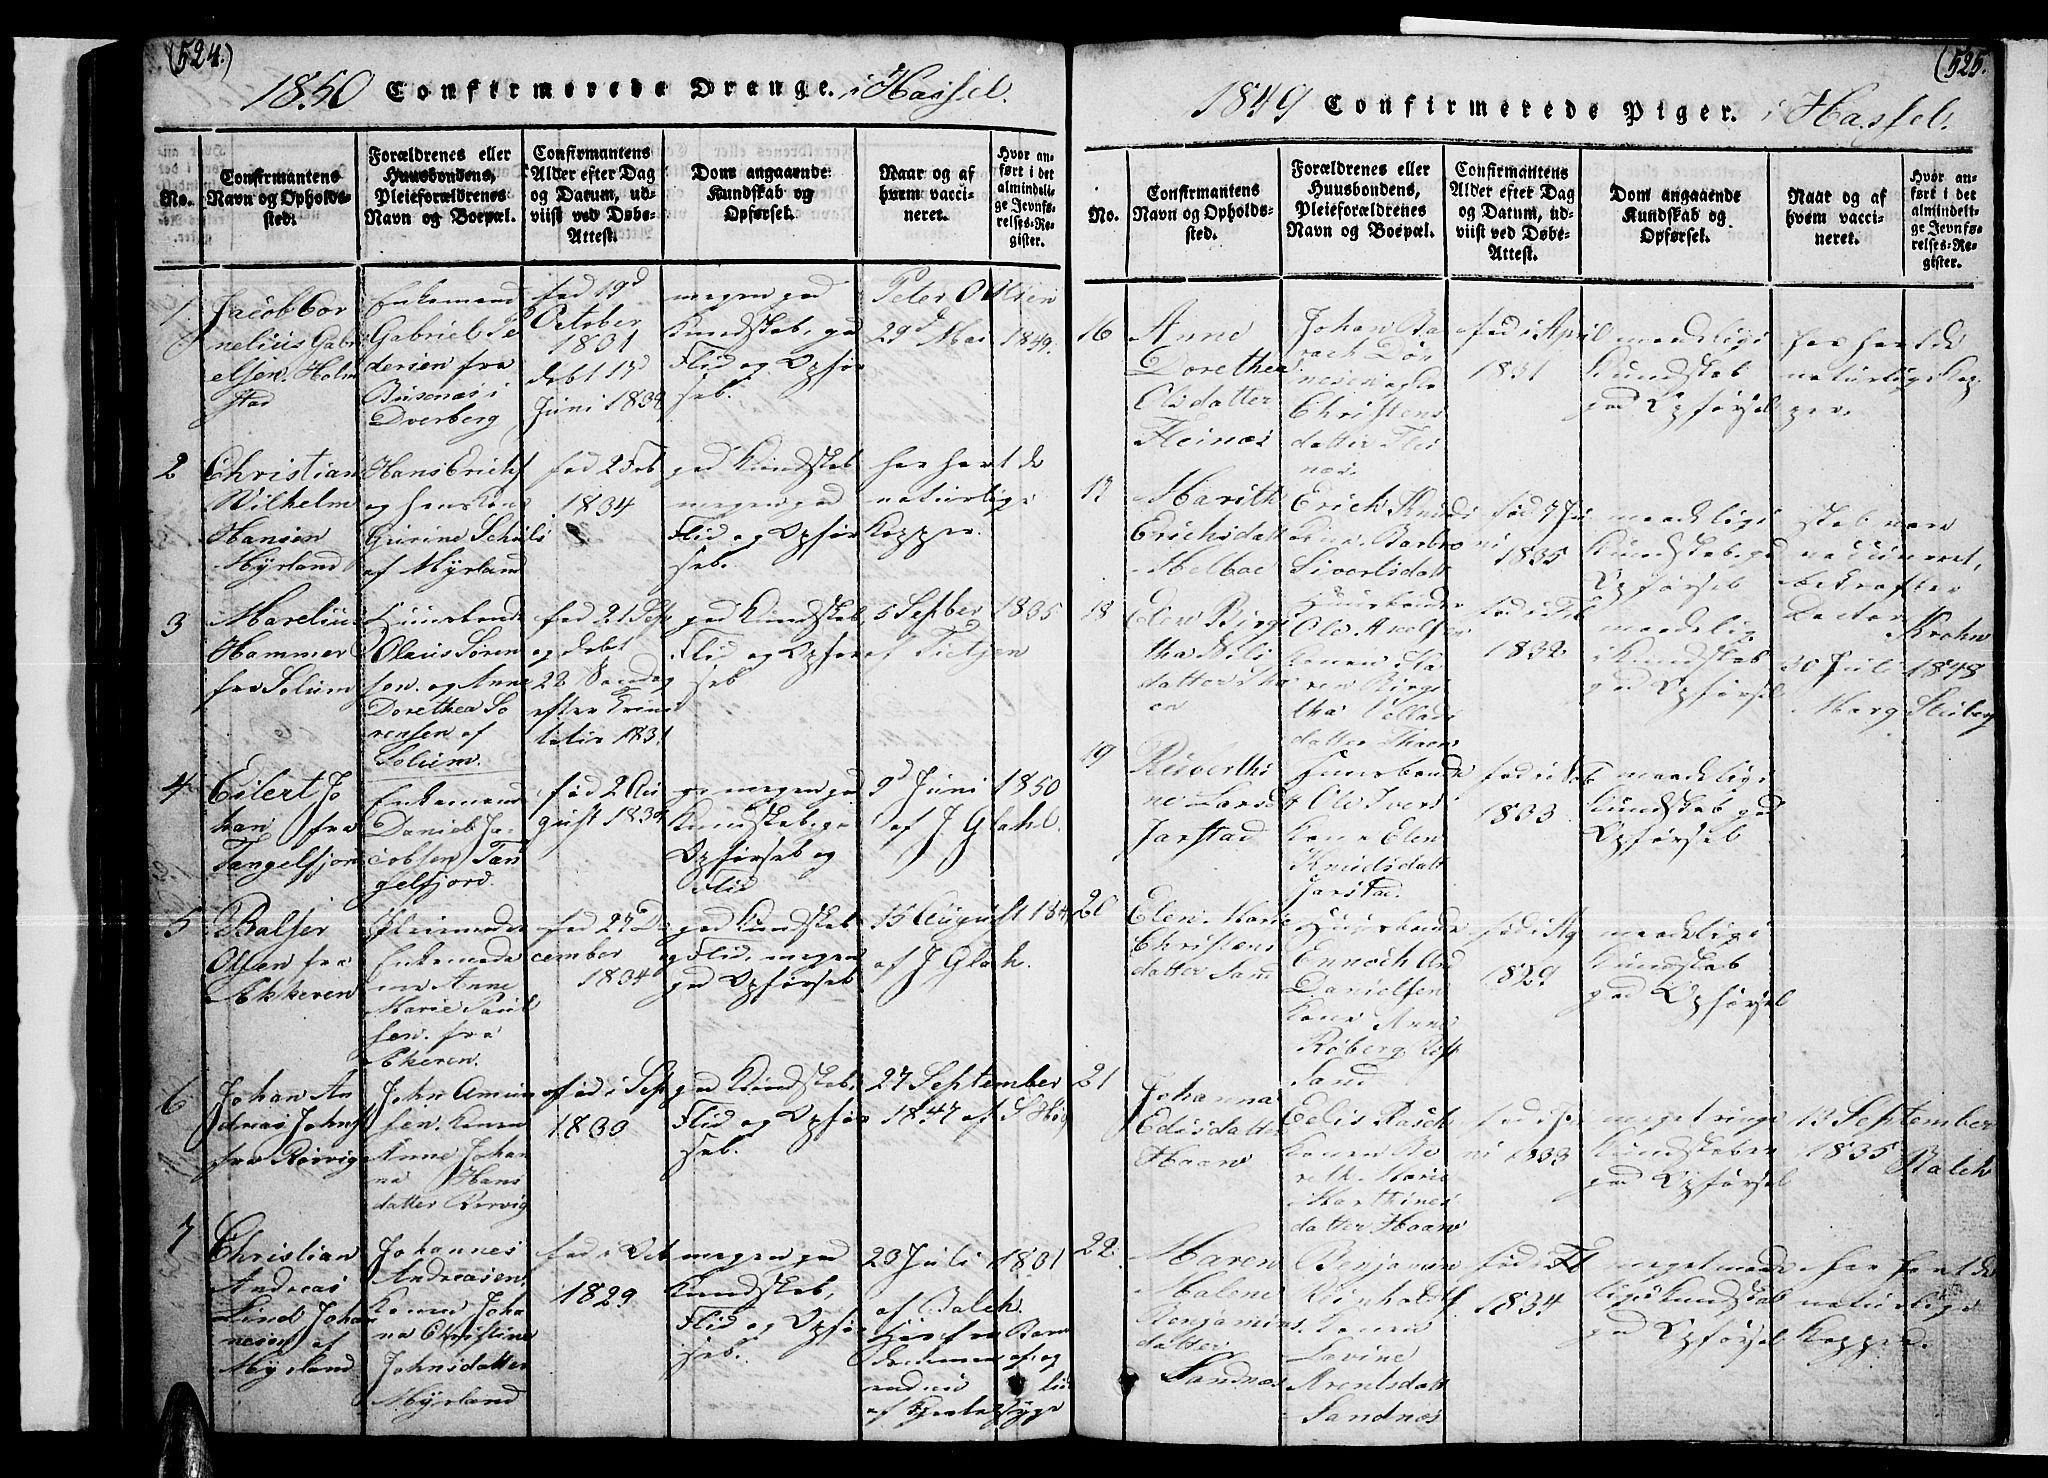 (524.)
1850 Confirmerede Drenge. i Hassel.
No.
Confirmantens
Navn og Opholds-
sted.
Forældrenes eller
Huusbondens,
Pleieforældrenes
Navn og Boepæl.
Confirmantens
Alder efter Dag
og Datum, ud-
viist ved Døbe-
Attest.
Dom angaaende
Kundskab og
Opførsel.
Naar og af
hvem vacci-
neret.
Hvor an-
ført i det
almindeli-
ge Jevnfø-
relses-Re-
gister.
1
Jacob Cor
nelius Gabri
elsen. Holm
stad
Enkemand
Gabriel Pe
dersen fra
i
Dverberg
fød 19d
October
1831
døbt 17d
Juni 1832
megen god
Kundskab, god
Flid og Opfør
sel.
Peter Olsen
29d Mai 1849.
2
Christian
Wilhelm
Hansen
Myrland
Hans Erichs
og
af Myrland
fød 2 Feb
1834
god Kundskab
megen god
Flid og Opfør
sel.
har havt de
naturlige
Kopper.
3
Marelius
Hammer
fra Solum
Huusbond
Olaus Søren
sen. og Anne
Dorethea So
rensen af
Solum.
fød 21 Sep
og døbt
22 Søndag
efter Trini
tatis 1831
god Kundskab
Flid og Opfør
sel
5 Septber 1835
af Tietjen
4
Eilert Jo
han fra
Tangelfjord
Enkemand
Daniel Ja-
cobsen Tan
gelfjord.
fød 2 Au
gust 1834
megen god
Kundskab,
Opførsel og
Flid
9d Juni 1850
af J. Glahl.
5
Balser
Olsen fra
Akkeren
Anne
Marie Paul
sen. fra
Akeren.
fød 27d De
cember
1834
god Kundskab
og Flid, megen
god Opførsel
15 August 184
af J. Glah.
6
Johan An
dreas Johns
fra Rørvig
John Amun
sen. Konen
Anne Johan
na Hans
datter Rørvig
fød i Sep
1833
god Kundskab,
Flid og Opfør
sel.
27 September
1847 af
7
Christian
Andreas
Lind Johan
nesen af
Myrland
Johannes
Andreasen,
Konen Joha
na Christine
Johnsdatter
Myrland
fød i Oct
1829
megen god
Kundskab,
Flid og Opfør
sel.
23 Juli 1831
af Balch.
(525.
1849 Confirmerede Piger. i Hassel.
No.
Confirmantens
Navn og Opholds-
sted.
Forældrenes eller
Huusbondens,
Pleieforældrenes
Navn og Boepæl.
Confirmantens
Alder efter Dag
og Datum, ud-
viist ved Døbe-
Attest.
Dom angaaende
Kundskab og
Opførsel.
Naar og af
hvem vacci-
neret.
Hvor an-
ført i det
almindeli-
ge Jevnfø-
relses-Re-
gister.
16
Anne
Dorethea
Olsdatter
Fleinæs
Johan
Christens
datter Flei
næs.
fød i April
1831
maadelig i
Kundskab
god Opførsel
har havt de
naturlige Kop
per.
17
Marith
Erichsdatt
Melboe
Erich Knuds
Barbro
Sivertsdatt
fød 7 Ju
ni 1835
maadelig i
Kundskab, god
Opførsel
18
Elen Birgi
tha Nils
datter
Huusbonde
Ole
Konen Ka
ren Birgi
tha
datter
fød i Feb
1832
maadelig
i Kundskab
god Opførsel
Krohn
30 Juli 1848
Marg Stuberg
19
ne Larsd
Jarstad
Huusbonde
Ole Ivers
Kone Elen
Knudsdatt
Jarstad.
fød i
1833
maadelig i
Kundskab god
Opførsel
20
Elen Marie
Christens
datter Sand
Huusbonde
Ennoch And
Danielsen
Kone Anne
Sand
fød i Ag
1829
maadelig i
Kundskab
god Opførsel
21
Johanna
Edisdatter
Haan
Edis Rasch
Konen Be
reth Marie
Marthines
datter Haan
fød i
1833
meget ringe
Kundskaber
god Opførsel
13 September
1835 Balch
22
Maren
Malene
Benjamins
datter
Sandnæs
Benjamin
Reinholdts
Konen
Lovine
Arentsdatt
Sandnæs
1834
meget maade
lig i Kundskab
god Opførsel
har havt de
naturlige
Kopper.